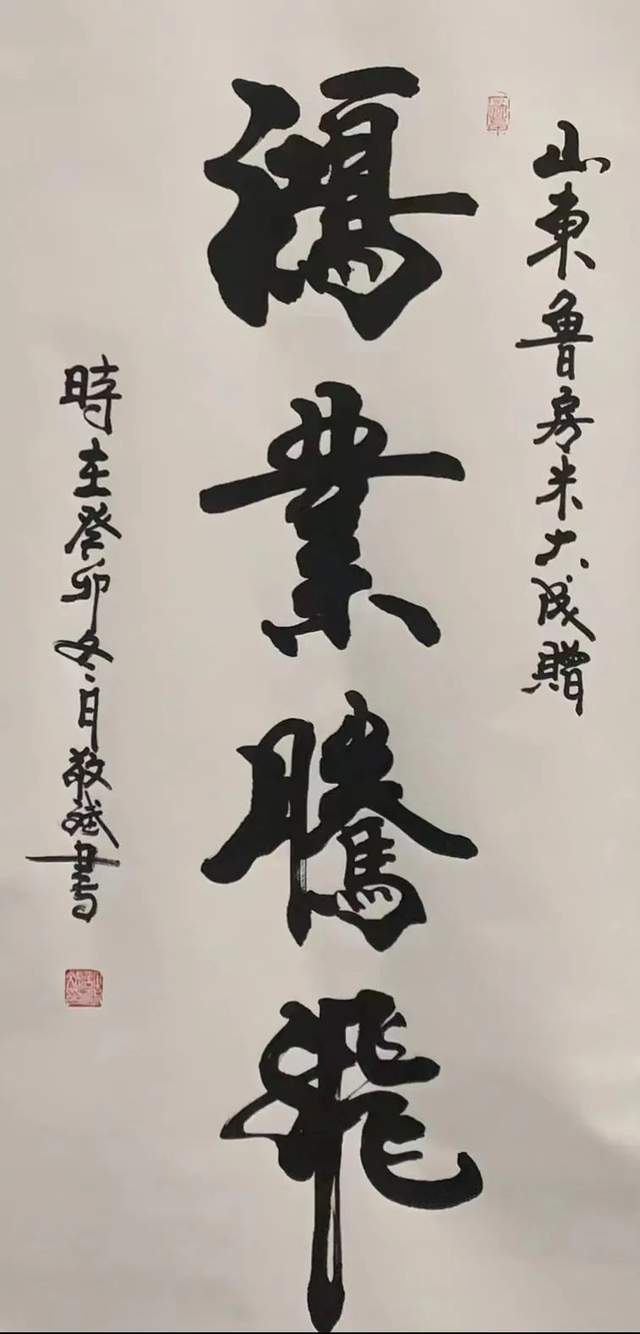 山東魯房米大成贈
鴻業騰飛
時在癸卯冬月敬斌書